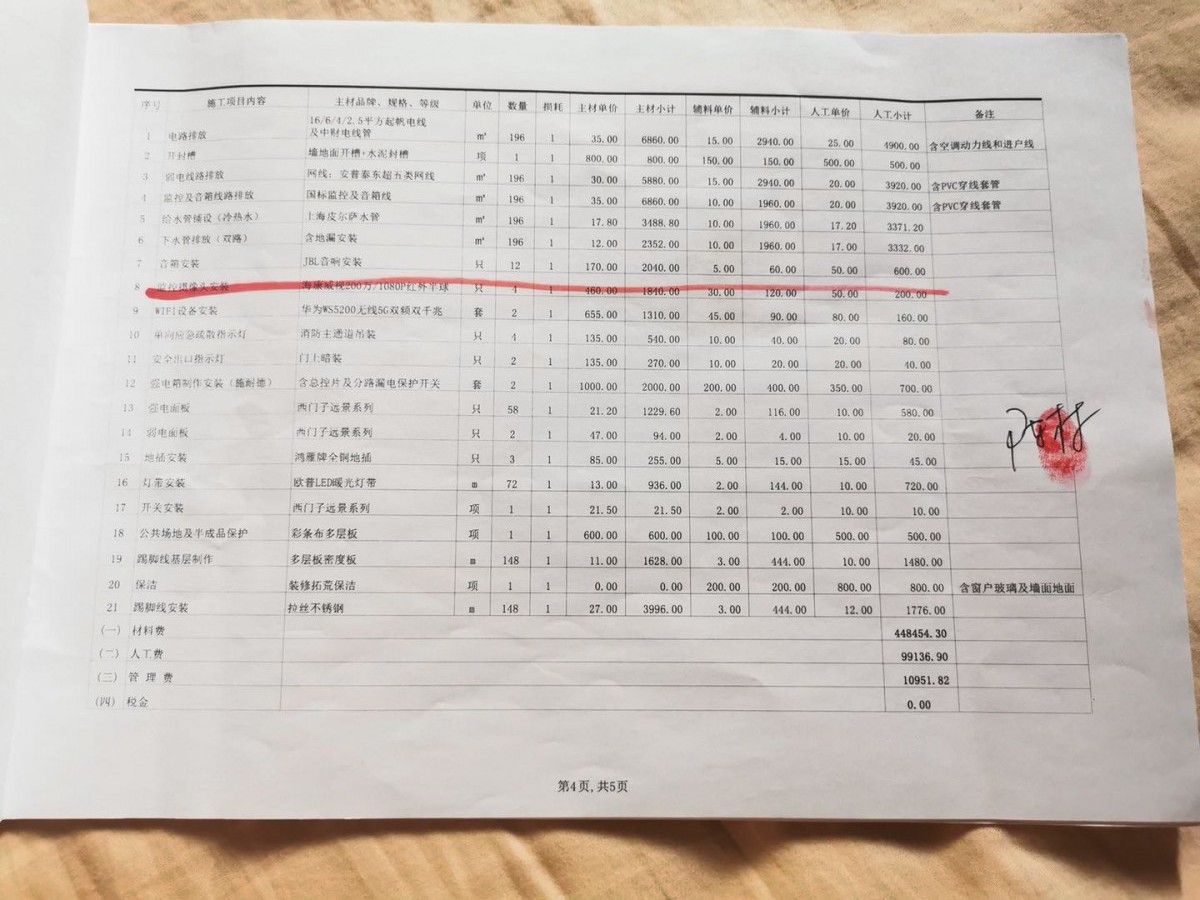 序号 施工项目内容 主材品牌、规格、等级 单位 数量 损耗 主材单价 主材小计 辅料单价 辅料小计 人工单价 人工小计 备注
1 电路排放 16/6/4/2.5平方起帆电线及中财电线管 m² 196 1 35.00 6860.00 15.00 2940.00 25.00 4900.00 含空调动力线和进户线
2 开封槽 墙地面开槽+水泥封槽 项 1 1 800.00 800.00 150.00 150.00 500.00 500.00
3 弱电线路排放 网线：安普泰东超五类网线 m² 196 1 30.00 5880.00 15.00 2940.00 20.00 3920.00 含PVC穿线套管
4 监控及音箱线路排放 国标监控及音箱线 m² 196 1 35.00 6860.00 10.00 1960.00 20.00 3920.00 含PVC穿线套管
5 给水管铺设（冷热水） 上海皮尔萨水管 m² 196 1 17.80 3488.80 10.00 1960.00 17.20 3371.20
6 下水管排放（双路） 含地漏安装 m² 196 1 12.00 2352.00 10.00 1960.00 17.00 3332.00
7 音箱安装 JBL音响安装 只 12 1 170.00 2040.00 5.00 60.00 50.00 600.00
8 监控摄像头安装 海康威视200万/1080P红外半球 只 4 1 460.00 1840.00 30.00 120.00 50.00 200.00
9 WIFI设备安装 华为WS5200无线5G双频双千兆 套 2 1 655.00 1310.00 45.00 90.00 80.00 160.00
10 单向应急疏散指示灯 消防主通道吊装 只 4 1 135.00 540.00 10.00 40.00 20.00 80.00
11 安全出口指示灯 门上暗装 只 2 1 135.00 270.00 10.00 20.00 20.00 40.00
12 强电箱制作安装（施耐德） 含总控片及分路漏电保护开关 套 2 1 1000.00 2000.00 200.00 400.00 350.00 700.00
13 强电面板 西门子远景系列 只 58 1 21.20 1229.60 2.00 116.00 10.00 580.00
14 弱电面板 西门子远景系列 只 2 1 47.00 94.00 2.00 4.00 10.00 20.00
15 地插安装 鸿雁牌全铜地插 只 3 1 85.00 255.00 5.00 15.00 15.00 45.00
16 灯带安装 欧普LED暖光灯带 m 72 1 13.00 936.00 2.00 144.00 10.00 720.00
17 开关安装 西门子远景系列 项 1 1 21.50 21.50 2.00 2.00 10.00 10.00
18 公共场地及半成品保护 彩条布多层板 项 1 1 600.00 600.00 100.00 100.00 500.00 500.00
19 踢脚线基层制作 多层板密度板 m 148 1 11.00 1628.00 3.00 444.00 10.00 1480.00
20 保洁 装修拓荒保洁 项 1 1 0.00 0.00 200.00 200.00 800.00 800.00 含窗户玻璃及墙面地面
21 踢脚线安装 拉丝不锈钢 m 148 1 27.00 3996.00 3.00 444.00 12.00 1776.00
(一) 材料费 448454.30
(二) 人工费 99136.90
(三) 管 理 费 10951.82
(四) 税金 0.00
第4页,共5页